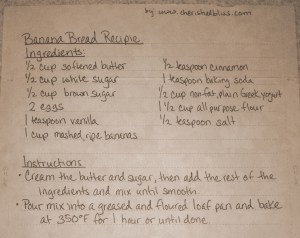 by: www.cherishedbliss.com
Banana Bread Recipie
Ingredients:
1/2 cup softened butter
1/2 cup white sugar
1/2 cup brown sugar
2 eggs
1 teaspoon vanilla
1 cup mashed, ripe bananas
1/2 teaspoon cinnamon
1 teaspoon baking soda
1/2 cup nonfat, plain Greek yogurt
1 1/2 cup all purpose flour
1/2 teaspoon salt
Instructions
• Cream the butter and sugar, then add the rest of the
ingredients and mix until smooth.
• Pour mix into a greased and floured loaf pan and bake
at 350°F for 1 hour or until done.